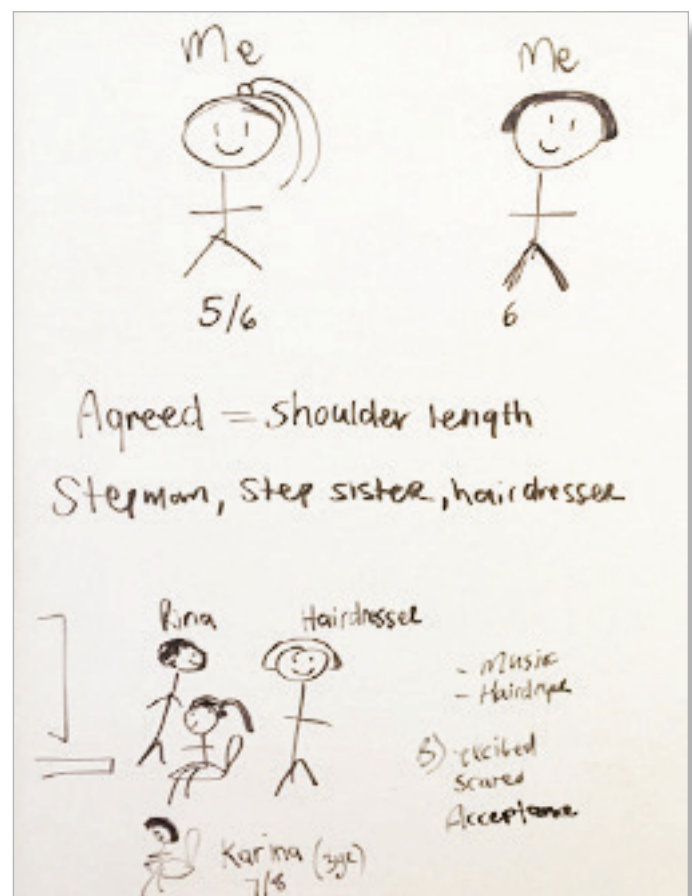 Me Me
5/6 6
Agreed = Shoulder length
Stepmom, Step sister, hairdresser
Rina Hairdresser
- Music
- Hairdryer
B) excited
scared
Acceptance
Karina (3yr)
7/8